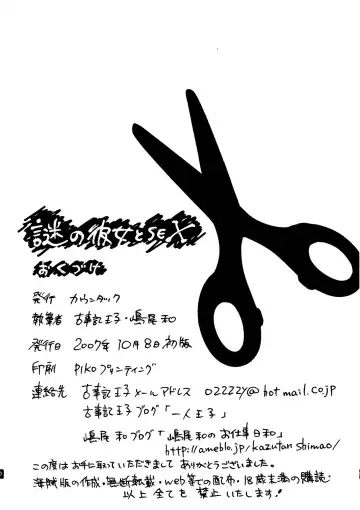 謎の彼女とSEX
おくづけ
発行 カウンタック
執筆者 古事記王子・嶋尾和
発行日 2007年10月8日初版
印刷 PIKOプリンティング
連絡先 古事記王子メールアドレス 02222y@hotmail.co.jp
古事記王子ブログ「一人王子」
嶋尾和ブログ「嶋尾和のお仕事日和」
http://ameblo.jp/kazutanshimao/
この度はお手に取っていただきまして ありがとうございました。
海賊版の作成・無断転載・web等での配布・18歳未満の購読
以上 全てを 禁止いたします!